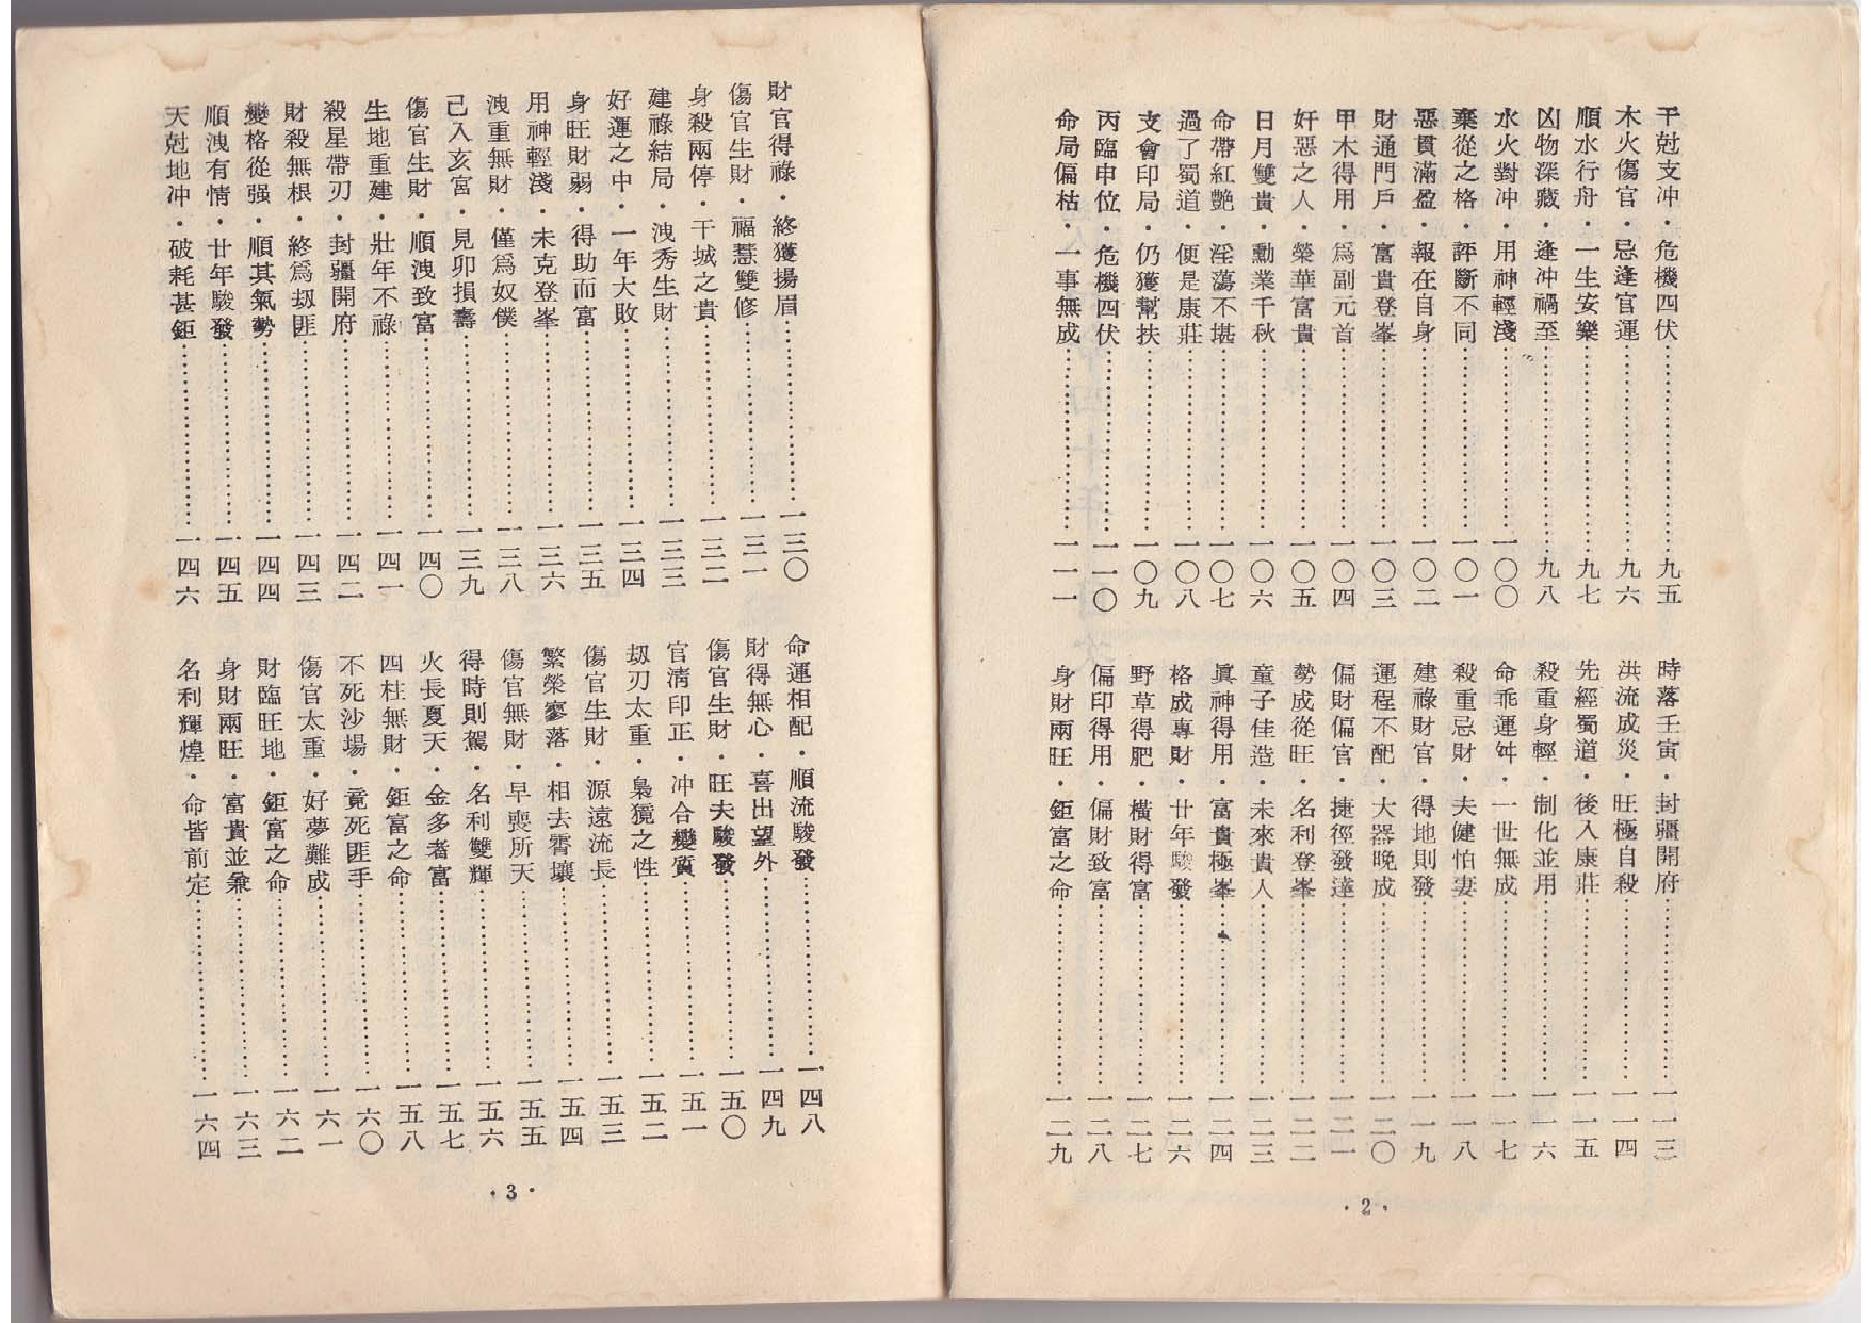 干尅支冲·危機四伏……九五
木火傷官·忌逢官運……九六
順水行舟·一生安樂……九七
凶物深藏·逢冲禍至……九八
水火對冲·用神輕淺……一〇〇
棄從之格·評斷不同……一〇一
惡貫滿盈·報在自身……一〇二
財通門戶·富貴登峯……一〇三
甲木得用·爲副元首……一〇四
奸惡之人·榮華富貴……一〇五
日月雙貴·勳業千秋……一〇六
命帶紅艷·淫蕩不堪……一〇七
過了蜀道·便是康莊……一〇八
支會印局·仍獲幫扶……一〇九
丙臨申位·危機四伏……一一〇
命局偏枯·一事無成……一一一
時落壬寅·封疆開府……一一三
洪流成災·旺極自殺……一一四
先經蜀道·後入康莊……一一五
殺重身輕·制化並用……一一六
命乖運舛·一世無成……一一七
殺重忌財·夫健怕妻……一一八
建祿財官·得地則發……一一九
運程不配·大器晚成……一二〇
偏財偏官·捷徑發達……一二一
勢成從旺·名利登峯……一二二
童子佳造·未來貴人……一二三
眞神得用·富貴極峯……一二四
格成專財·廿年駿發……一二六
野草得肥·橫財得富……一二七
偏印得用·偏財致富……一二八
身財兩旺·鉅富之命……一二九
·2·
財官得祿·終獲揚眉……一三〇
傷官生財·福慧雙修……一三一
身殺兩停·干城之貴……一三二
建祿結局·洩秀生財……一三三
好運之中·一年大敗……一三四
身旺財弱·得助而富……一三五
用神輕淺·未克登峯……一三六
洩重無財·僅爲奴僕……一三八
己入亥宮·見卯損壽……一三九
傷官生財·順洩致富……一四〇
生地重建·壯年不祿……一四一
殺星帶刃·封疆開府……一四二
財殺無根·終爲刼匪……一四三
變格從强·順其氣勢……一四四
順洩有情·廿年駿發……一四五
天尅地冲·破耗甚鉅……一四六
命運相配·順流駿發……一四八
財得無心·喜出望外……一四九
傷官生財·旺夫駿發……一五〇
官清印正·冲合變質……一五一
刼刃太重·梟獍之性……一五二
傷官生財·源遠流長……一五三
繁榮寥落·相去霄壤……一五四
傷官無財·早喪所天……一五五
得時則駕·名利雙輝……一五六
火長夏天·金多者富……一五七
四柱無財·鉅富之命……一五八
不死沙場·竟死匪手……一六〇
傷官太重·好夢難成……一六一
財臨旺地·鉅富之命……一六二
身財兩旺·富貴並兼……一六三
名利輝煌·命皆前定……一六四
·3·